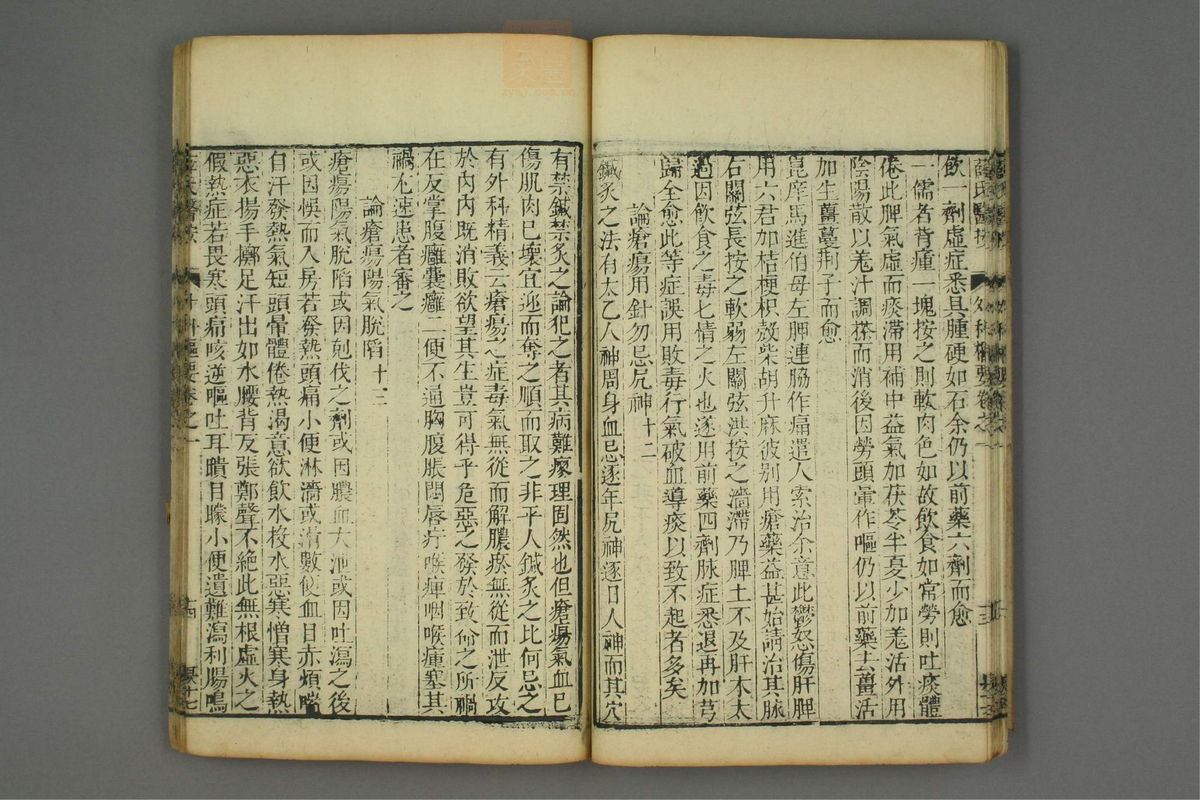 飲一劑虛症悉具腫硬如石余仍以前藥六劑而愈
一儒者背瘇一塊按之則軟肉色如故飲食如常勞則吐痰體
倦此脾氣虛而痰滯用補中益氣加茯苓半夏少加羗活外用
陰陽散以羗汁調搽而消後因勞頭暈作嘔仍以前藥去薑活
加生薑蔓荆子而愈
崑庠馬進伯母左胛連脇作痛遣人索治余意此鬱怒傷肝脾
用六君加桔梗枳殼柴胡升麻彼别用瘡藥益甚始請治其脉
右關弦長按之軟弱左關弦洪按之濇滯乃脾土不及肝木太
過因飲食之毒七情之火也遂用前藥四劑脉症悉退再加芎
歸全愈此等症誤用敗毒行氣破血導痰以致不起者多矣
論瘡瘍用針勿忌尻神十二
鍼灸之法有太乙人神周身血忌逐年尻神逐日人神而其穴
有禁鍼禁灸之論犯之者其病難瘳理固然也但瘡瘍氣血已
傷肌肉已壞宜迎而奪之順而取之非平人鍼灸之比何忌之
有外科精義云瘡瘍之症毒氣無從而解膿瘀無從而泄反攻
於内内既消敗欲望其生豈可得乎危惡之發於致命之所禍
在反掌腹癰囊癰二便不通胸腹脹悶唇疔喉痺咽喉瘇塞其
禍尤速患者審之
論瘡瘍陽氣脫陷十三
瘡瘍陽氣脫陷或因尅伐之劑或因膿血大泄或因吐瀉之後
或因悞而入房若發熱頭痛小便淋濇或淸數便血目赤煩喘
自汗發熱氣短頭暈體倦熱渴意欲飲水投水惡寒憎寒身熱
惡衣揚手擲足汗出如水腰背反張鄭聲不絶此無根虛火之
假熱症若畏寒頭痛咳逆嘔吐耳聵目矇小便遺難瀉利腸鳴
薛氏醫按 外科樞要卷之一